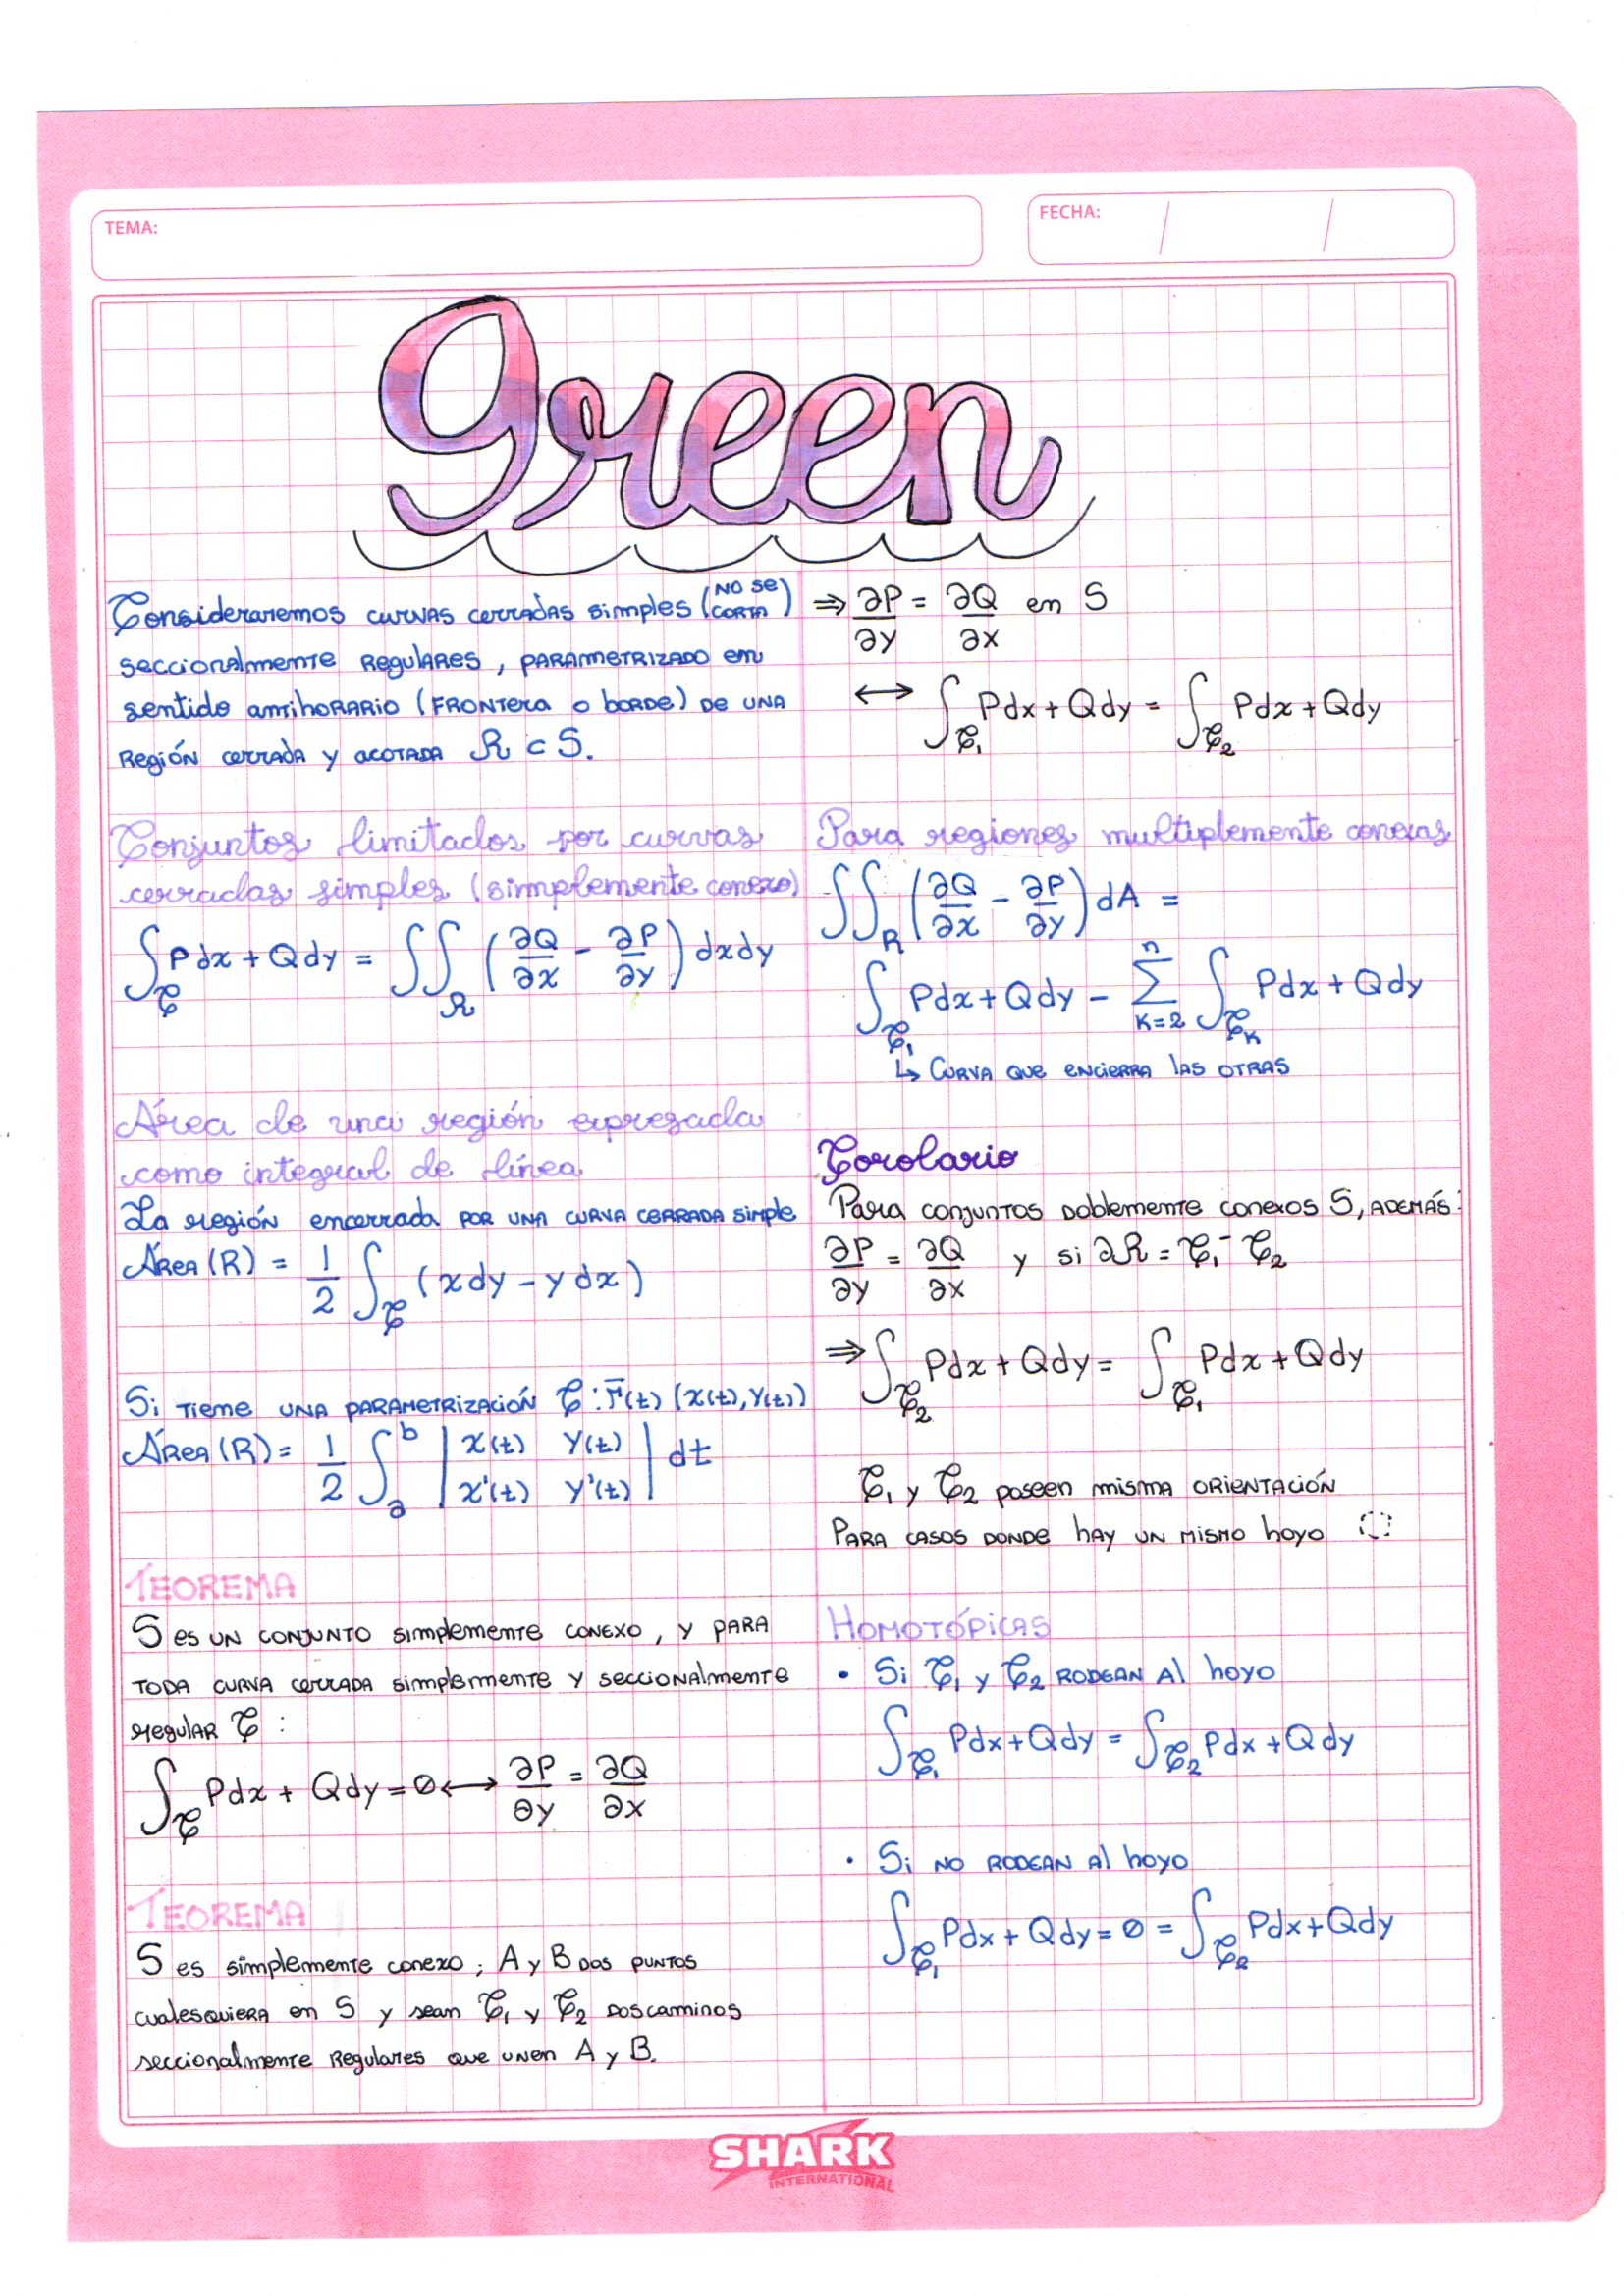 TEMA:
FECHA:
Green
Consideraremos curvas cerradas simples (no se corta)
seccionalmente regulares, parametrizado en
sentido antihorario (frontera o borde) de una
región cerrada y acotada R ⊂ S.
Conjuntos limitados por curvas
cerradas simples (simplemente conexo)
∫_C Pdx + Qdy = ∫∫_R (∂Q/∂x - ∂P/∂y) dxdy
Área de una región expresada
como integral de línea
La región encerrada por una curva cerrada simple
Área (R) = 1/2 ∫_C (xdy - ydx)
Si tiene una parametrización C: r̄(t) (x(t), y(t))
Área (R) = 1/2 ∫_a^b | x(t) y(t) |
| x'(t) y'(t) | dt
TEOREMA
S es un conjunto simplemente conexo, y para
toda curva cerrada simplemente y seccionalmente
regular C :
∫_C Pdx + Qdy = 0 ⟷ ∂P/∂y = ∂Q/∂x
TEOREMA
S es simplemente conexo; A y B dos puntos
cualesquiera en S y sean C₁ y C₂ dos caminos
seccionalmente regulares que unen A y B.
⇒ ∂P/∂y = ∂Q/∂x en S
⟷ ∫_C₁ Pdx + Qdy = ∫_C₂ Pdx + Qdy
Para regiones multiplemente conexas
∫∫_R (∂Q/∂x - ∂P/∂y) dA =
∫_C₁ Pdx + Qdy - Σ_{k=2}^n ∫_Cₖ Pdx + Qdy
↳ Curva que encierra las otras
Corolario
Para conjuntos doblemente conexos S, además:
∂P/∂y = ∂Q/∂x y si ∂R = C₁ - C₂
⇒ ∫_C₂ Pdx + Qdy = ∫_C₁ Pdx + Qdy
C₁ y C₂ poseen misma orientación
Para casos donde hay un mismo hoyo
HOMOTÓPICAS
• Si C₁ y C₂ rodean al hoyo
∫_C₁ Pdx + Qdy = ∫_C₂ Pdx + Qdy
• Si no rodean al hoyo
∫_C₁ Pdx + Qdy = 0 = ∫_C₂ Pdx + Qdy
SHARK
INTERNATIONAL